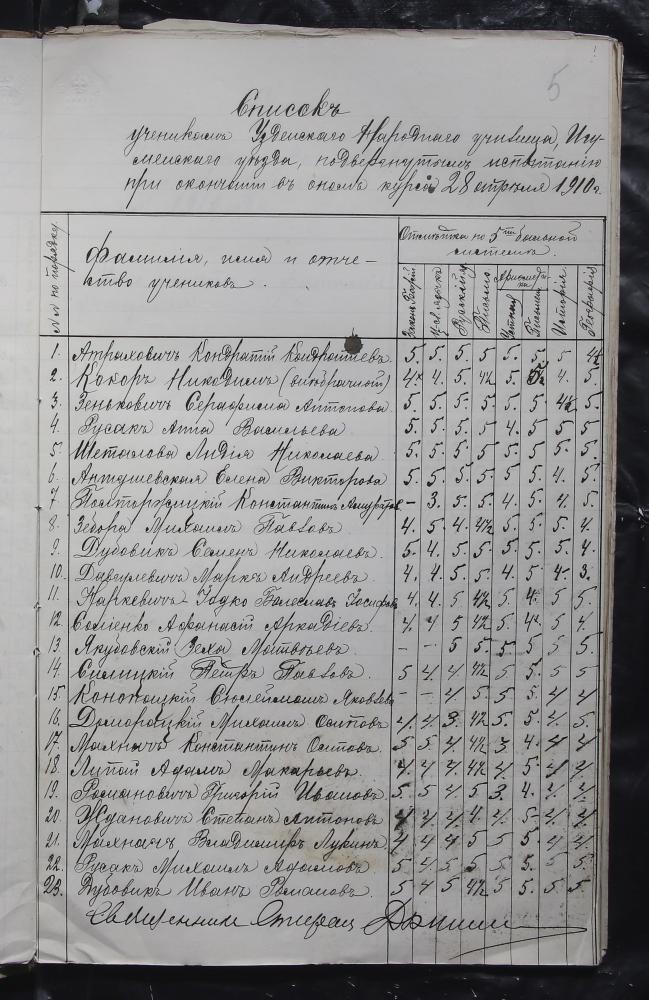 5
Списокъ
ученикамъ Узденскаго Народнаго училища, Игу-
менскаго уѣзда, подвергнутымъ испытанію
при окончаніи въ ономъ курса 28 апрѣля 1910 г.
№№ по порядку
Фамилія, имя и отче-
ство учениковъ.
Отмѣтка по 5ти бальной
системѣ.
Законъ Божій
Русскій
Письмо
Ариѳмети-
ка
Устная
Письмен.
Исторія
Географія
1. Атрахович Кондратій Кондратьевъ 5. 5. 5. 5 5. 5. 5 4½
2. Кокоръ Никодимъ 4. 4. 5. 4½ 5. 4. 5.
3. Зеньковичъ Серафима Антонова 5 5. 5. 5. 5. 5. 4½ 5.
4. Русакъ Анна Васильева 5. 5. 5. 5. 4. 5. 5. 5.
5. Лидія Николаева 5. 5. 5. 5. 5. 5. 5. 5.
6. Антушевская Елена Викторова 5. 5. 5. 5. 5. 5. 4. 5.
7. Константинъ – 3. 5. 5. 4. 5. 4. 5.
8. Зебора Михаилъ Павловъ 4. 5. 4. 4½ 5. 5. 5. 4.
9. Дубовикъ Семенъ Николаевъ. 5. 4. 5. 5 5. 5. 5. 4.
10. Давидовичъ Маркъ Андреевъ. 4. 4. 5. 5. 4. 5. 4. 3.
11. Наркевичъ-Іодко Болеславъ Іосифовъ 4. 4. 5 4½ 5. 4. 5. 5.
12. Афанасій Аркадіевъ. 4. 4 5 4½ 5. 4. 5. 4.
13. Якубовскій Матвѣевъ. – – 5 5. 5 5 5 5
14. Силицкій Петръ Павловъ 5 4. 4. 4½ 5 5. 5 5
15. Конопацкій Сюлейманъ Яковлевъ – – 4 5. 5 5. 4 4
16. Домороцкій Михаилъ Осиповъ 4. 4. 3. 4½ 5. 5. 4. 5
17. Махначъ Константинъ Осиповъ. 5 5. 4. 4½ 3. 4. 4 4
18. Липой Адамъ Макарьевъ. 4. 4 4. 4½ 4 5. 4 4
19. Романовичъ Григорій Ивановъ. 5. 5 4 5 3. 4. 4 4
20. Ждановичъ Степанъ Антоновъ 4 4 4 4. 4 5 4 4
21. Махначъ Владимиръ Лукинъ 4 4 4 5 5 5. 4 4
22. Русакъ Михаилъ Адамовъ 5 4. 5 5 5 5. 5 5.
23. Дубовикъ Иванъ Романовъ. 5 4 5 4½ 5. 5. 5 5
Священникъ